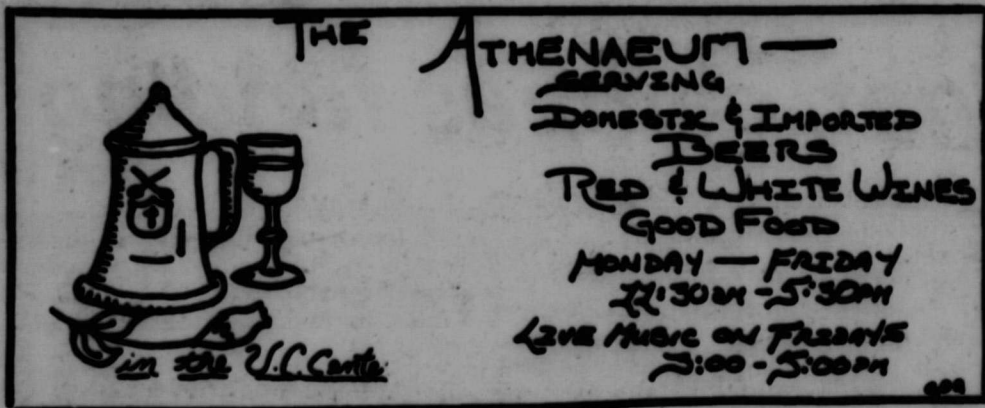 THE ATHENAEUM —
SERVING
DOMESTIC & IMPORTED
BEERS
RED & WHITE WINES
GOOD FOOD
MONDAY — FRIDAY
11:30AM - 5:30PM
LIVE MUSIC ON FRIDAYS
3:00 - 5:00PM
in the U.C. Cente